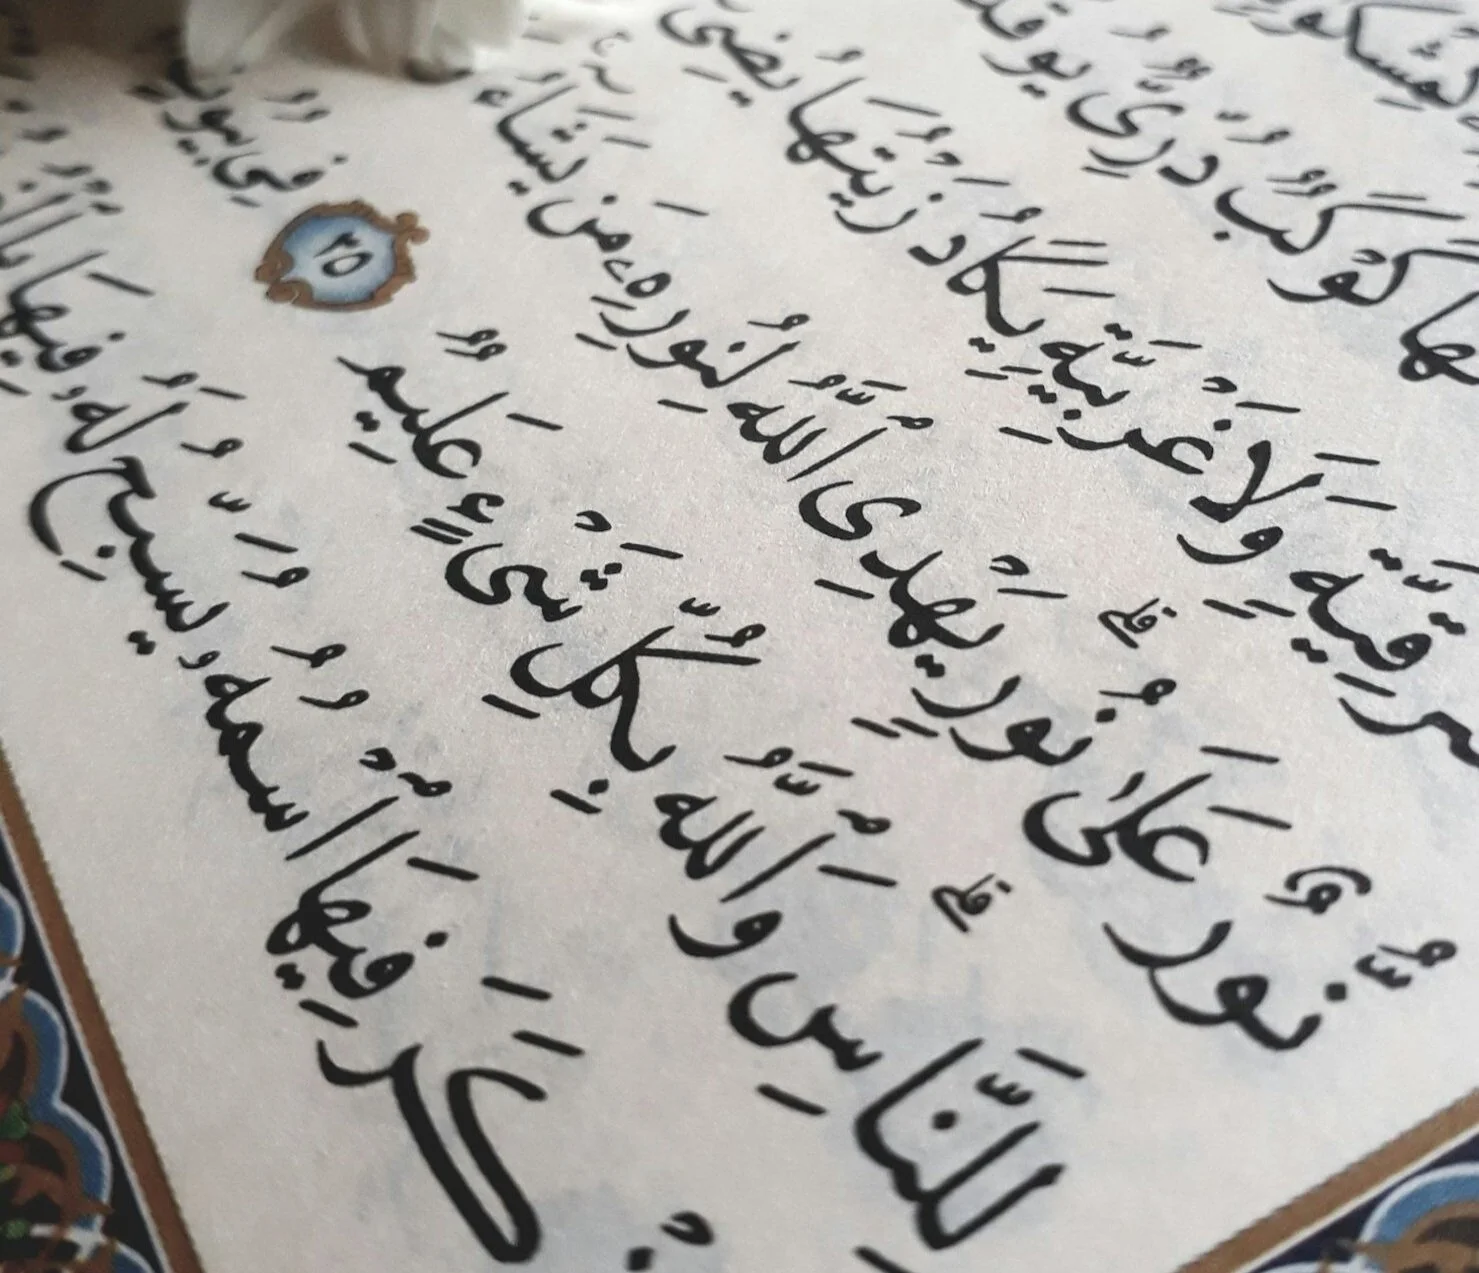 كَمِشْكَوٰةٍ
كَوْكَبٌ دُرِّىٌّ يُوقَدُ
وَلَا غَرْبِيَّةٍ يَكَادُ زَيْتُهَا يُضِىٓ
نُّورٌ عَلَىٰ نُورٍ ۗ يَهْدِى ٱللَّهُ لِنُورِهِۦ مَن يَشَآءُ ۚ
لِلنَّاسِ ۗ وَٱللَّهُ بِكُلِّ شَىْءٍ عَلِيمٌ ٣٥ فِى بُيُوتٍ
كَرَ فِيهَا ٱسْمُهُۥ يُسَبِّحُ لَهُۥ فِيهَا